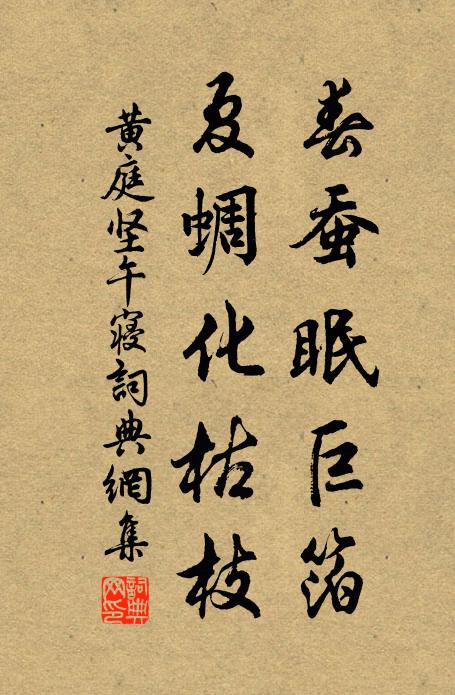 春蚕眠巨箔
夏蜩化枯枝
黄庭坚午寝詞典網集
詞典网印